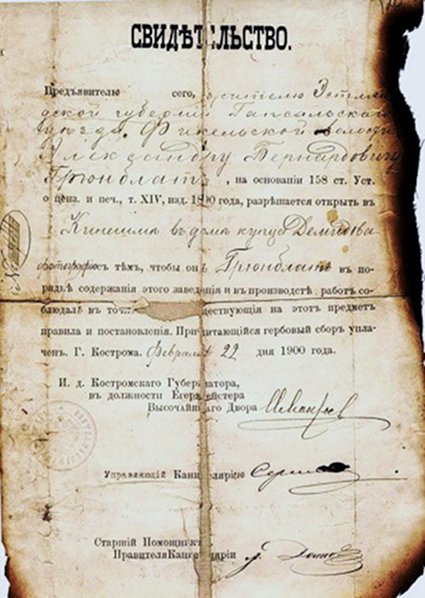 СВИДѢТЕЛЬСТВО.
Предъявителю сего, жителю Эстлян
дской губерніи Гапсальскаго
уѣзда, Фикельской волости
Александру Бернардовичу
Грюнблатъ, на основаніи 158 ст. Уст.
о ценз. и печ., т. XIV, изд. 1890 года, разрѣшается открыть въ
Кинешмѣ въ домѣ купца Демидова
фотографію съ тѣмъ, чтобы онъ Грюнблатъ въ по-
рядкѣ содержанія этого заведенія и въ производствѣ работъ со-
блюдалъ въ точности существующія на этотъ предметъ
правила и постановленія. Причитающійся гербовый сборъ упла-
ченъ. Г. Кострома. Февраля 22 дня 1900 года.
И. д. Костромскаго Губернатора,
въ должности Егермейстера
Высочайшаго Двора
Управляющій Канцеляріею
Старшій Помощникъ
Правителя Канцеляріи